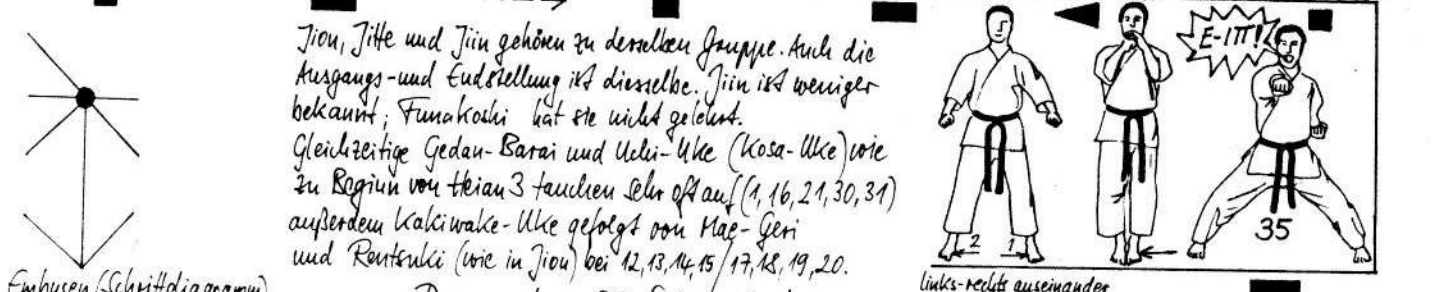 Jion, Jitte und Jiin gehören zu derselben Gruppe. Auch die
Ausgangs- und Endstellung ist diesselbe. Jiin ist weniger
bekannt; Funakoshi hat sie nicht gelehrt.
Gleichzeitige Gedan-Barai und Uchi-Uke (Kosa-Uke) wie
zu Beginn von Heian 3 tauchen sehr oft auf (1, 16, 21, 30, 31)
außerdem Kakiwake-Uke gefolgt von Mae-Geri
und Rentsuki (wie in Jion) bei 12, 13, 14, 15/17, 18, 19, 20.
Embusen (Schrittdiagramm)
E-ITT!
35
2 1
links-rechts auseinander